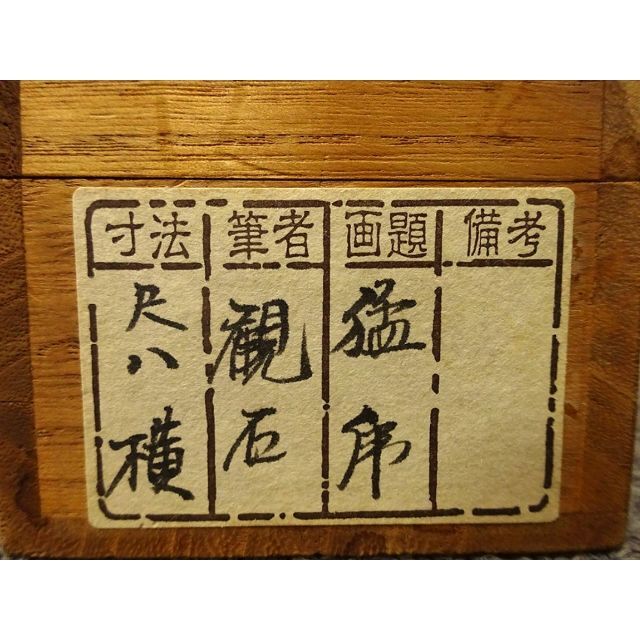 寸法
尺八横
筆者
観石
画題
猛虎
備考